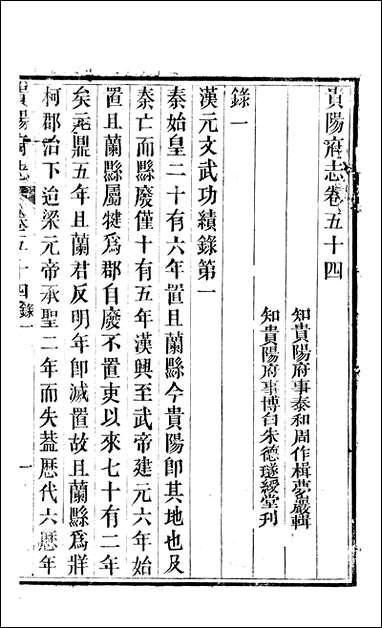 貴陽府志卷五十四
知貴陽府事泰和周作楫夢巖輯
知貴陽府事博白朱德璲綬堂刊
錄一
漢元文武功績錄第一
秦始皇二十有六年置且蘭縣今貴陽卽其地也及
秦亡而縣廢僅十有五年漢興至武帝建元六年始
置且蘭縣屬犍爲郡自廢不置吏以來七十有二年
矣元鼎五年且蘭君反明年卽滅置故且蘭縣爲牂
柯郡治下迨梁元帝承聖二年而失葢歴代六歴年
貴陽府志 卷五十四 錄一 一